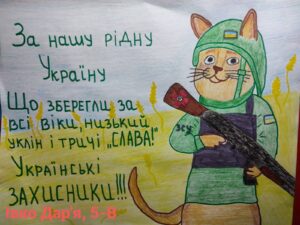 За нашу рідну
Україну
Що зберегли за
всі віки, низький
уклін і тричі „СЛАВА!"
Українські
ЗАХИСНИКИ!!!
ЗСУ
Івко Дар'я, 5-В